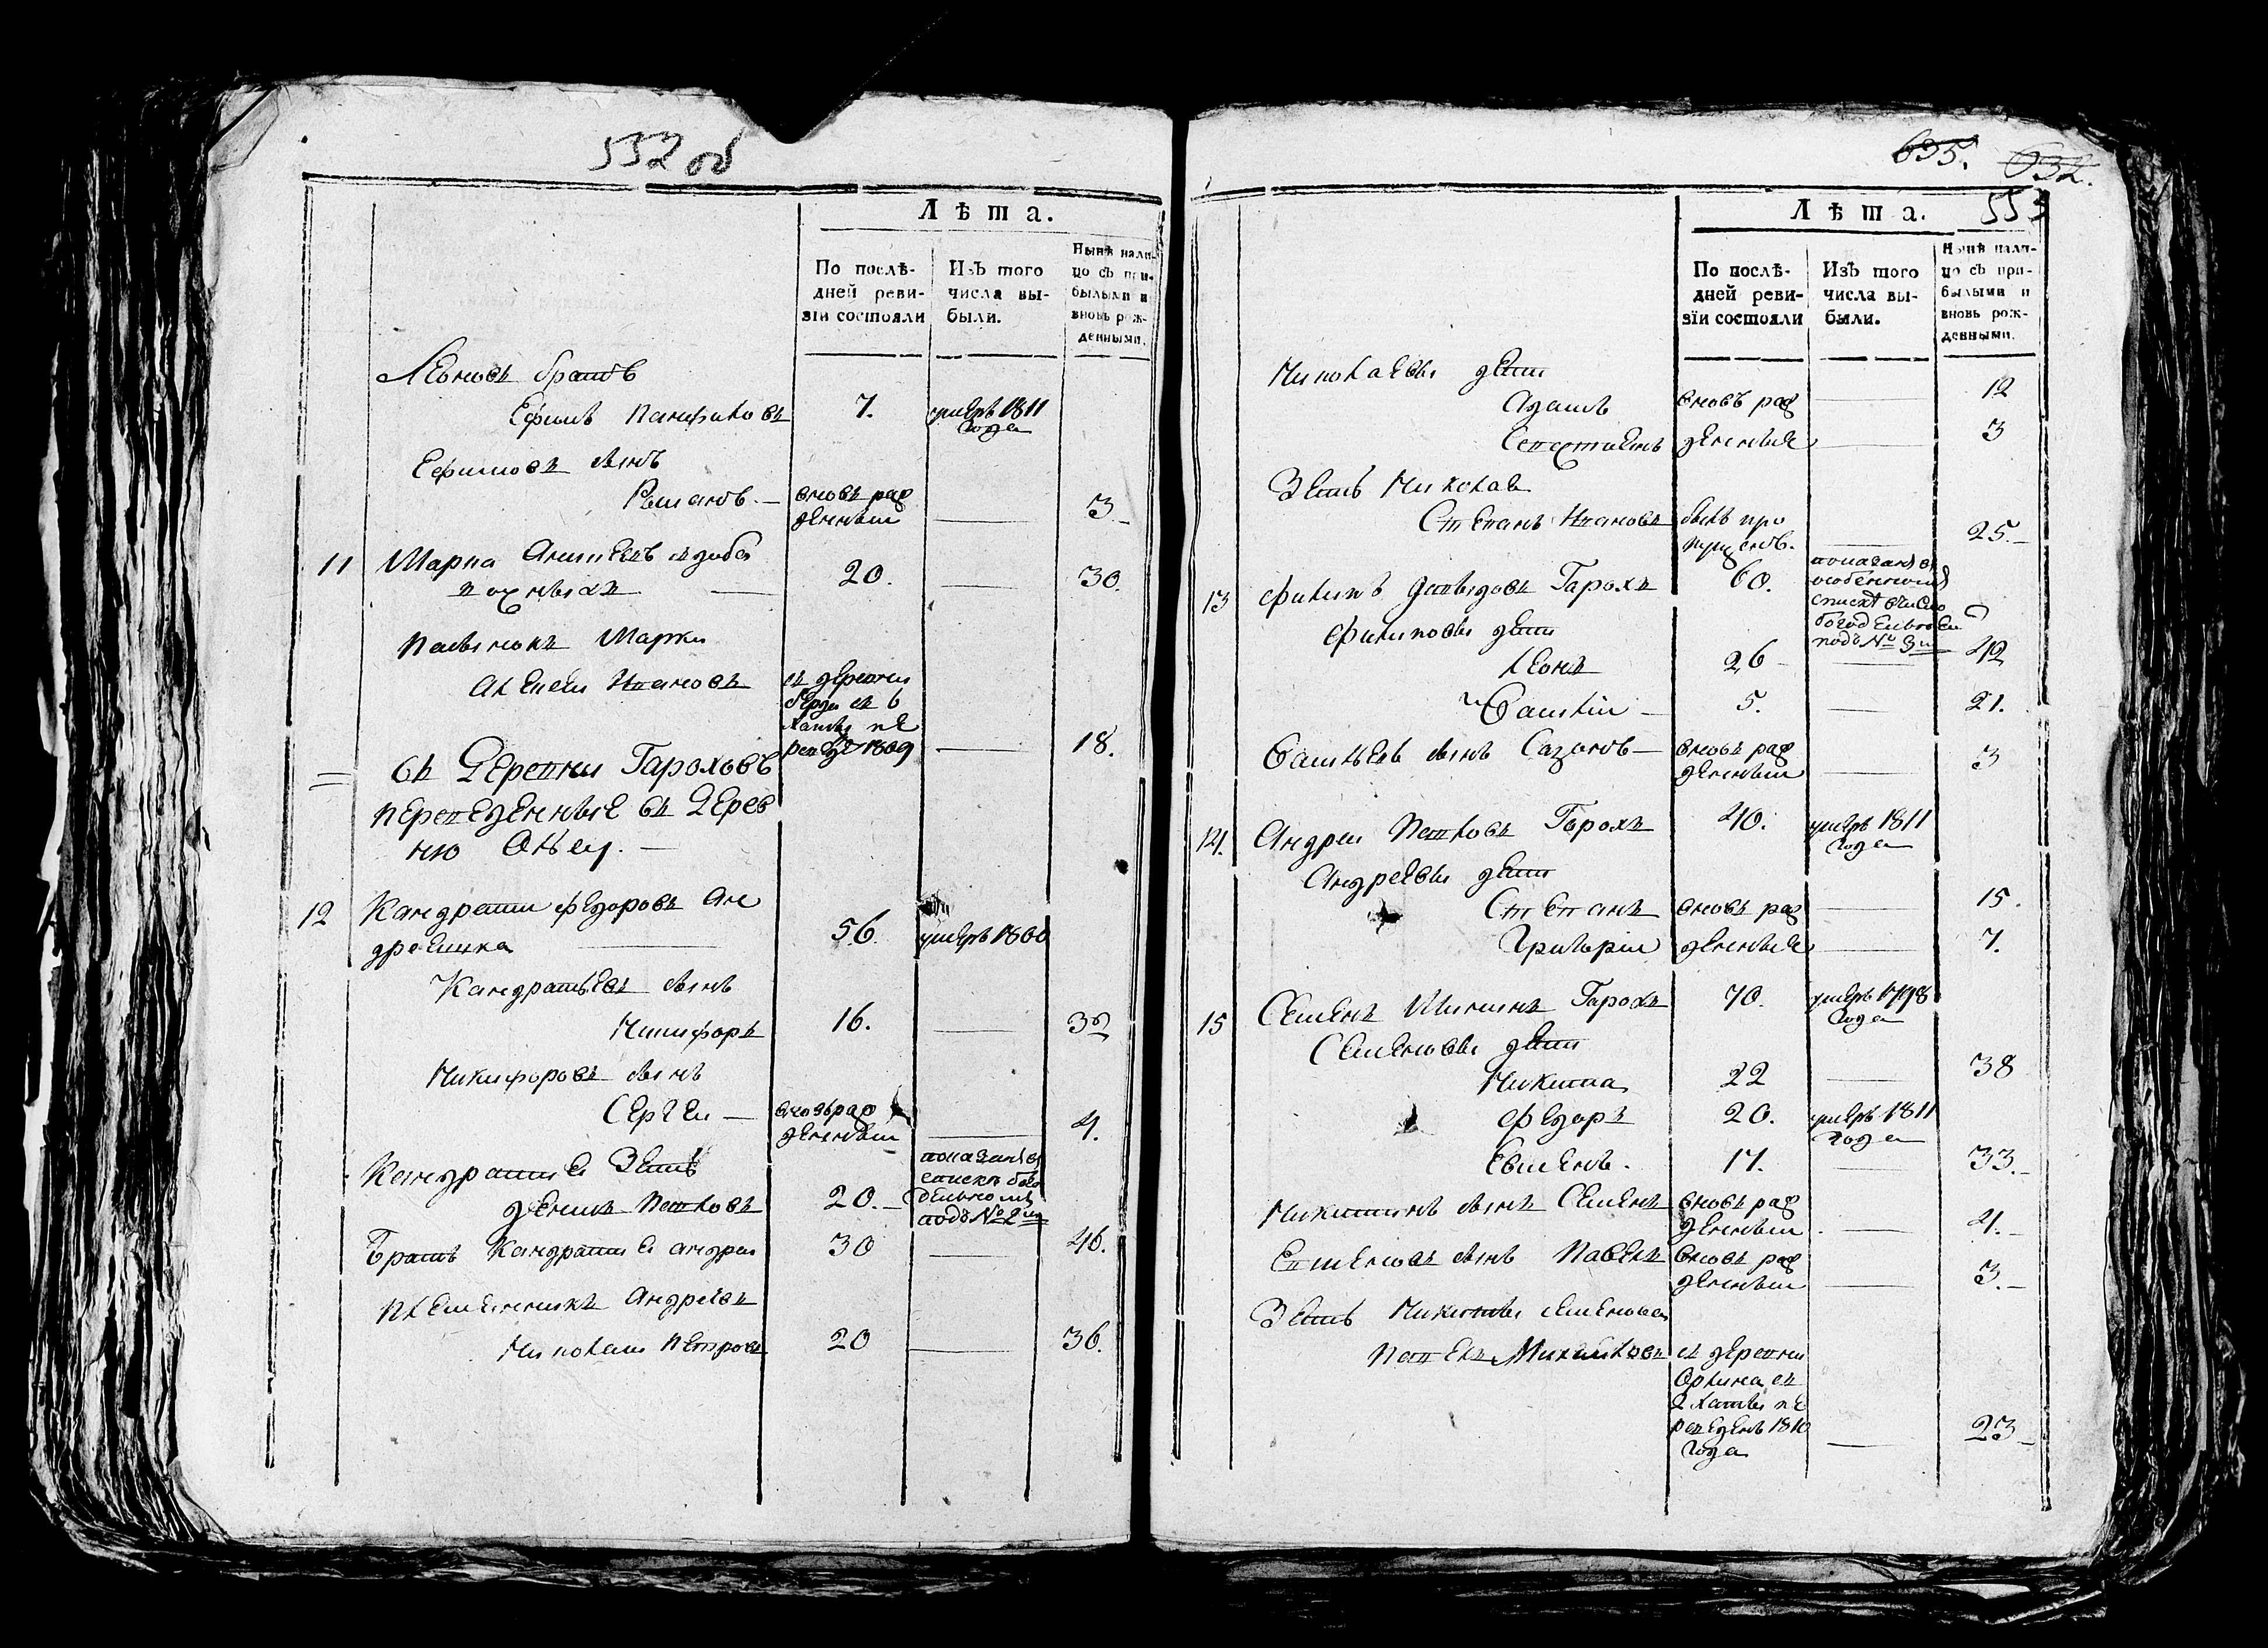 552 об
Лѣта.
По послѣ-
дней реви-
зіи состояли
Изъ того
числа вы-
были.
Нынѣ нали-
цо съ при-
былыми и
вновь рож-
денными.
Леоновъ братъ
Ефимъ Панфиловъ 7. умеръ 1811
года
Ефимовъ сынъ
Романъ — вновь раж
денный 3
11 Марка
20. 30.
Марки
Алексей Ивановъ съ деревни
съ 6
хаты пе
реведе 1809 18.
съ Деревни Гароховъ
переведенные въ Дерев
ню
12 Кандратий Федоровъ Ан
дреенка 56. умеръ 1800
Кандратьевъ сынъ
Никифоръ 16. 32
Никифоровъ сынъ
Сергей — вновь раж
денный 4.
Кандратия Зять
Денисъ Павловъ 20. показанъ въ
списке бого
дельномъ
подъ № 2м
Братъ Кандратия Андрей 30 46.
Племенникъ Андреевъ
Николай Петровъ 20 36.
635. 632.
553
Лѣта.
По послѣ-
дней реви-
зіи состояли
Изъ того
числа вы-
были.
Нынѣ нали-
цо съ при-
былыми и
вновь рож-
денными.
Николаевы дети
Адамъ вновь раж 12
денные 3
Зять Николая
Степанъ Ивановъ былъ про
пущенъ. 25.
13 Филипъ Давыдовъ Гарохъ 60. показанъ въ
особенномъ
списке
подъ № 3м
Филиповы дети
Леонъ 26 42
Василий 5. 21.
Васильевъ сынъ Сазонъ — вновь раж
денный 3
14. Андрей Павловъ Гарохъ 40. умеръ 1811
года
Андреевы дети
Степанъ вновь раж 15.
Григорий денные 7.
15 Семенъ Мининъ Гарохъ 70. умеръ 1798
года
Семеновы дети
Никита 22 38
Федоръ 20. умеръ 1811
года
Евменъ. 17. 33.
Никитинъ сынъ Семенъ вновь раж
денный 4.
Евменовъ сынъ Павелъ вновь раж
денный 3.
Зять Никиты Семенова
Павелъ Михайловъ съ деревни
съ
2 хаты пе
реведенъ 1810
года 23